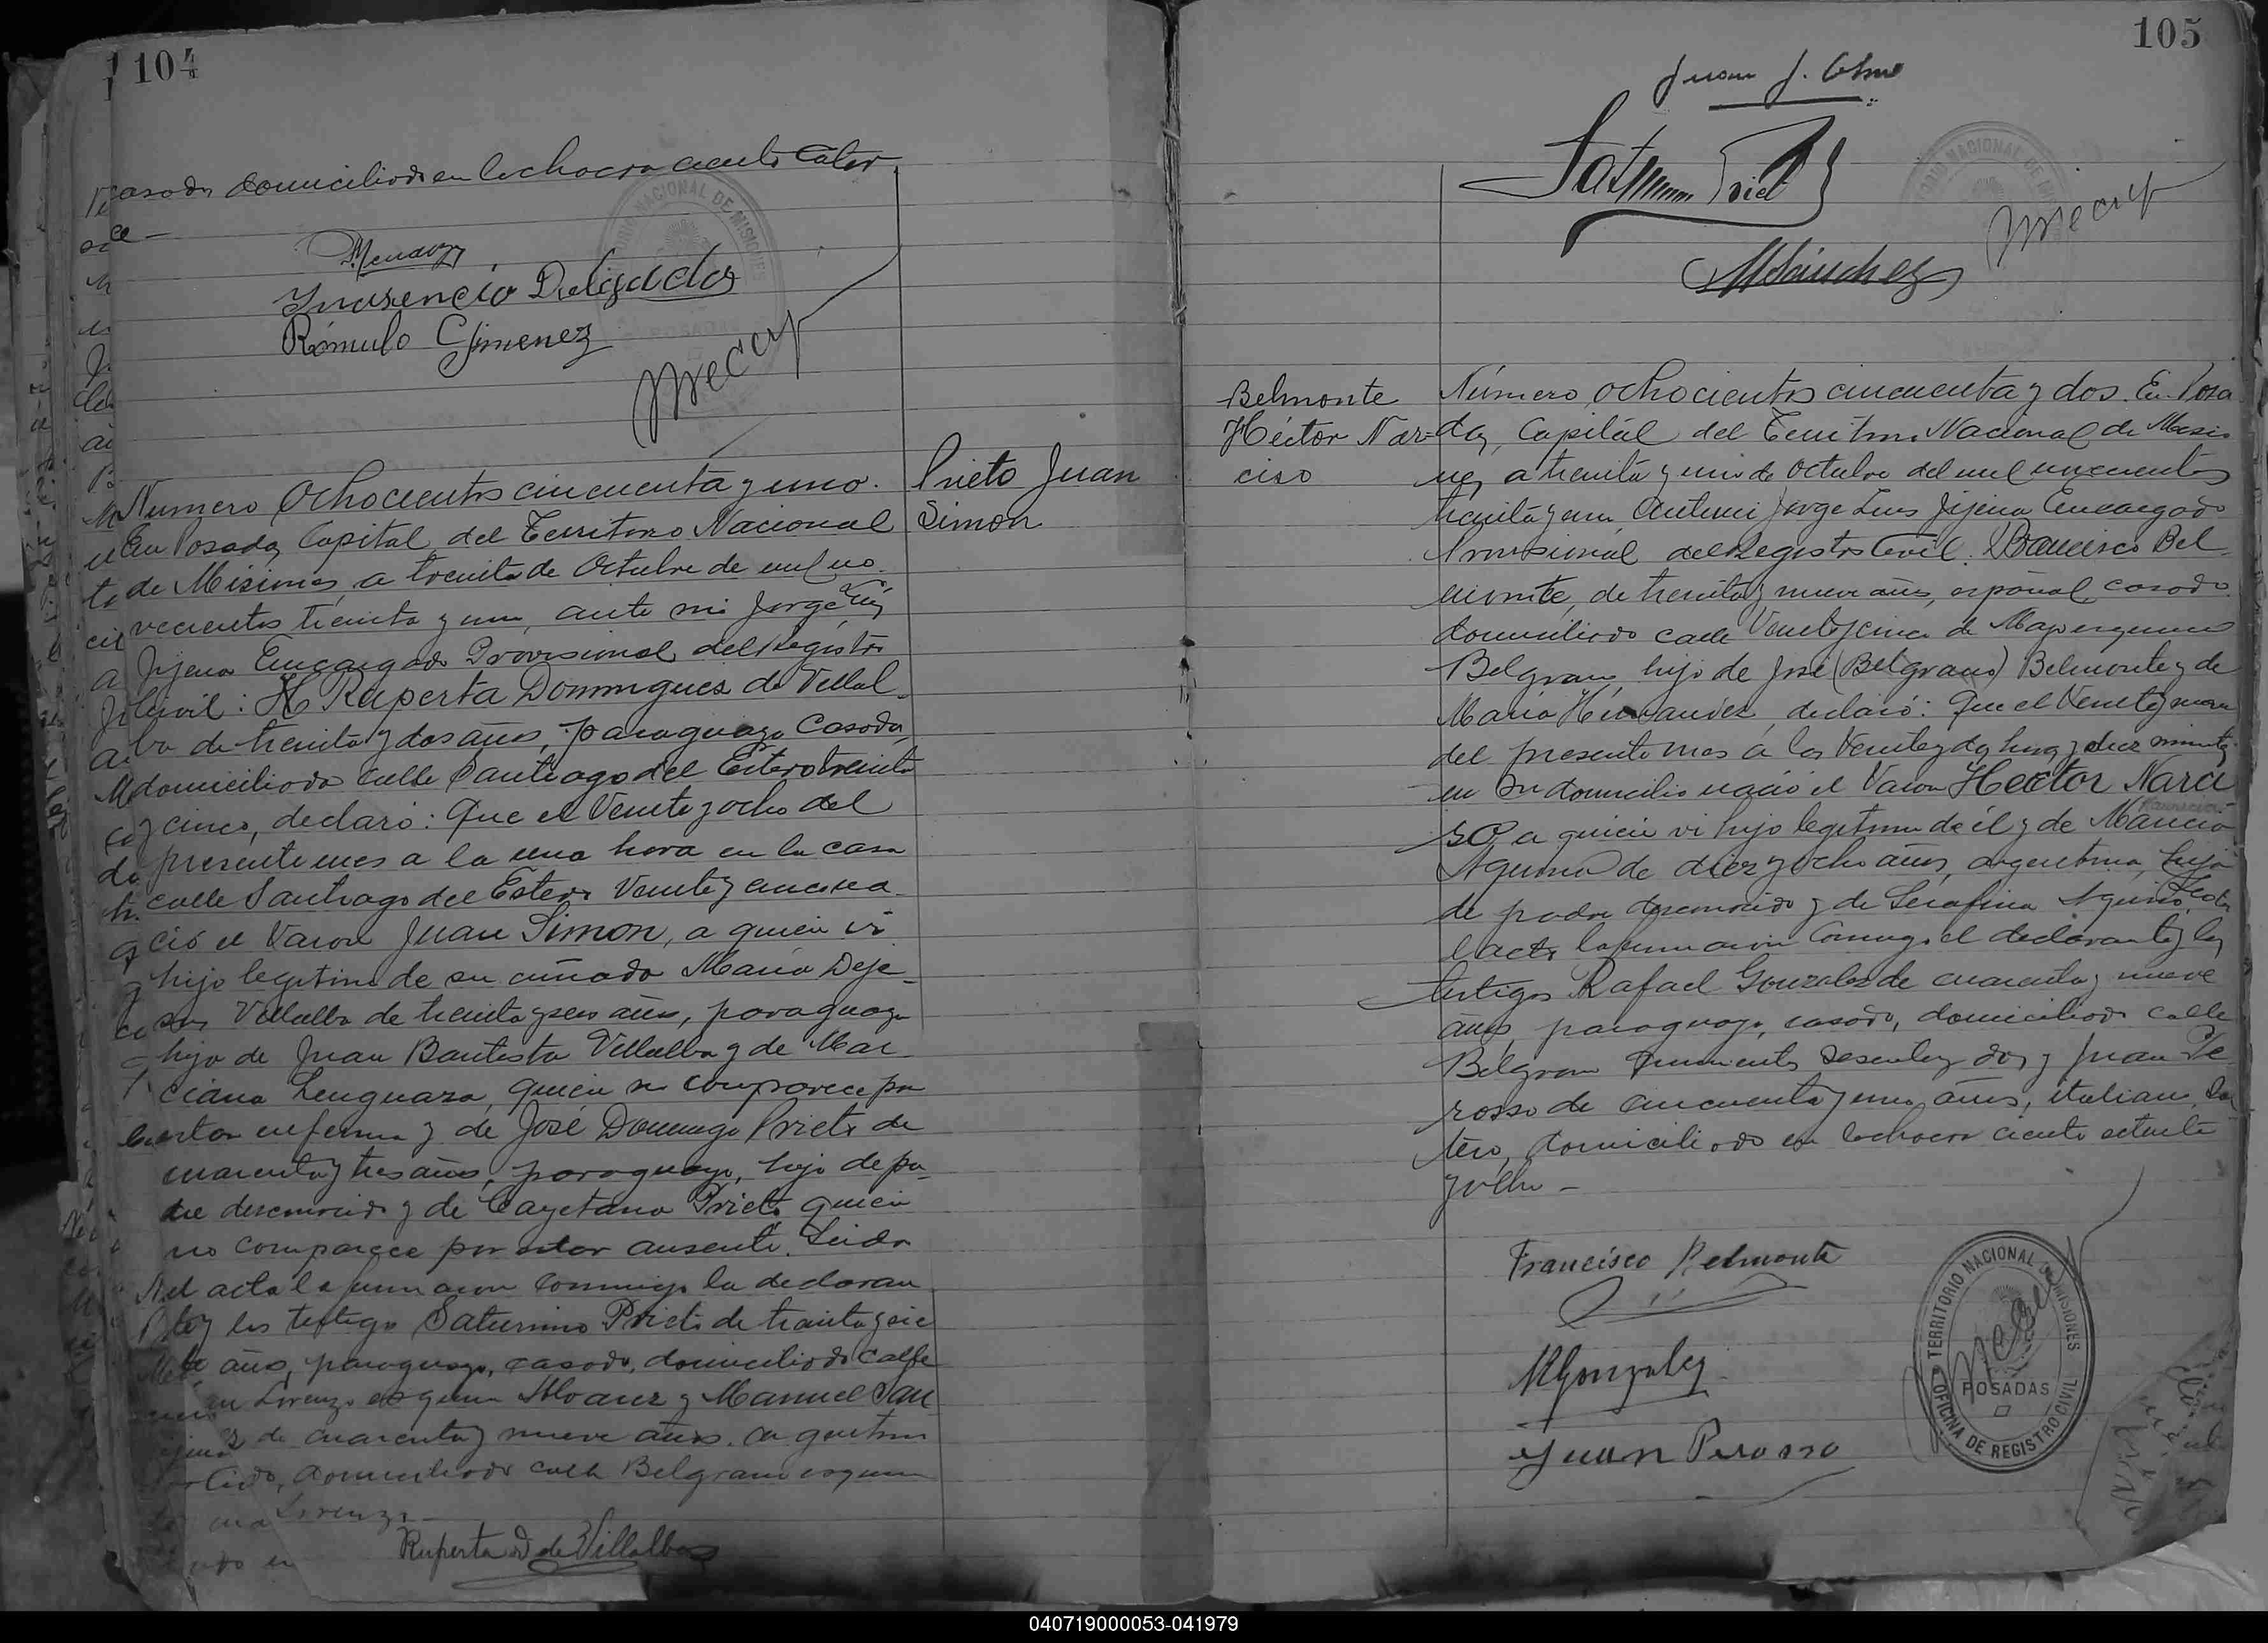 104
casado, domiciliado en la chacra ciento cator
ce -
Mendoza
Inosencio Delgado
Rómulo Gimenez
Prieto Juan
Simon
Número Ochocientos cincuenta y uno.
En Posadas, Capital del Territorio Nacional
de Misiones, a treinta de Octubre de mil no
vecientos treinta y uno, ante mi Jorge Luis
Jijena Encargado Provisional del Registro
Civil: Ruperta Domingues de Villal-
ba de treinta y dos años, paraguaya casada,
domiciliada calle Santiago del Estero treinta
y cinco, declaró: Que el Veinte y ocho del
presente mes a la una hora en la casa
calle Santiago del Estero Veinte y cinco na
ció el Varon Juan Simon, a quien vi
hijo legitimo de su cuñada Maria Deje-
sus Villalba de treinta y seis años, paraguaya
hija de Juan Bautista Villalba y de Mar
ciana Lenguaza, quien no comparece por
estar enferma y de José Domingo Prieto de
cuarenta y tres años, paraguayo, hijo de pa-
dre desconocido y de Cayetana Prieto quien
no comparece por estar ausente. Leida
el acta la firmaron conmigo la declaran
te y los testigos Saturnino Prieto de treinta y sie
te años, paraguayo, casado, domiciliado calle
San Lorenzo esquina Alvarez y Manuel San
de cuarenta y nueve años. argentino
domiciliado calle Belgrano esquina
Lorenzo -
Ruperta D de Villalba
105
Juan J.
Saturnino Prieto
MSánchez
Belmonte
Héctor Nar-
ciso
Número ochocientos cincuenta y dos. En Posa
das, Capital del Territorio Nacional de Misio
nes, a treinta y uno de Octubre del mil novecientos
treinta y uno, ante mi Jorge Luis Jijena Encargado
Provisional del Registro Civil. Francisco Bel
monte, de treinta y nueve años, español, casado
domiciliado calle Veinte y cinco de Mayo esquina
Belgrano, hijo de José (Belgrano) Belmonte y de
Maria Hernandez, declaró: Que el Veinte y nueve
del presente mes a las Veinte y dos horas y diez minutos
en su domicilio nació el Varon Hector Narci
so, a quien vi hijo legitimo de él y de
Aquino de diez y ocho años, argentina, hija
de padre desconocido y de Serafina Aquino. Leida
el acta la firmaron conmigo el declarante y los
testigos Rafael Gonzalez de cuarenta y nueve
años, paraguayo, casado, domiciliado calle
Belgrano quinientos sesenta y dos y Juan Pe
rosso de cincuenta y uno años, italiano, sol
tero, domiciliado en la chacra ciento setenta
y ocho -
Francisco Belmonte
RGonzalez
Juan Perosso
TERRITORIO NACIONAL DE MISIONES
POSADAS
OFICINA DE REGISTRO CIVIL
040719000053-041979